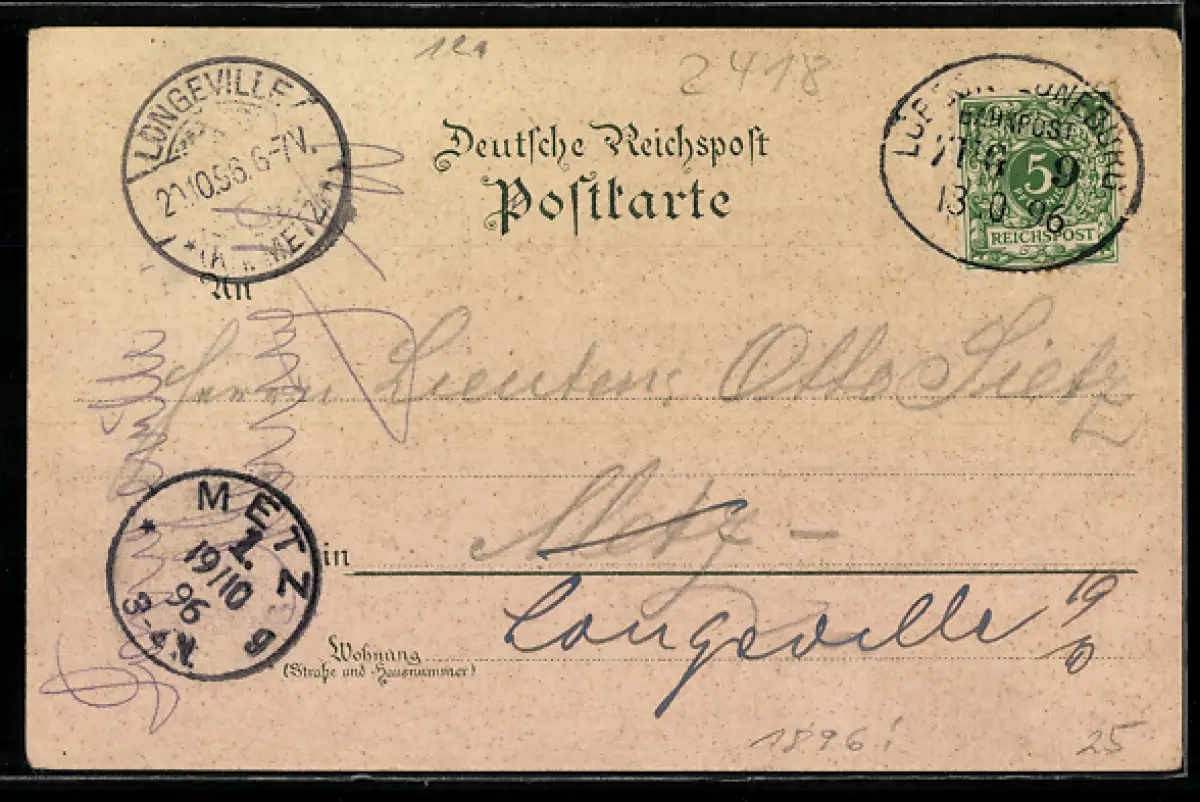 2418
LONGEVILLE
20.10.96.6-7V.
METZ
Deutsche Reichspost
Postkarte
BAHNPOST
ZUG 9
13 10 96
5
REICHSPOST
An
Herrn Lieuten: Otto Sietz
METZ
1.
19/10
96
3-4N
in Metz –
Longeville 19/10
Wohnung
(Straße und Hausnummer)
1896!
25